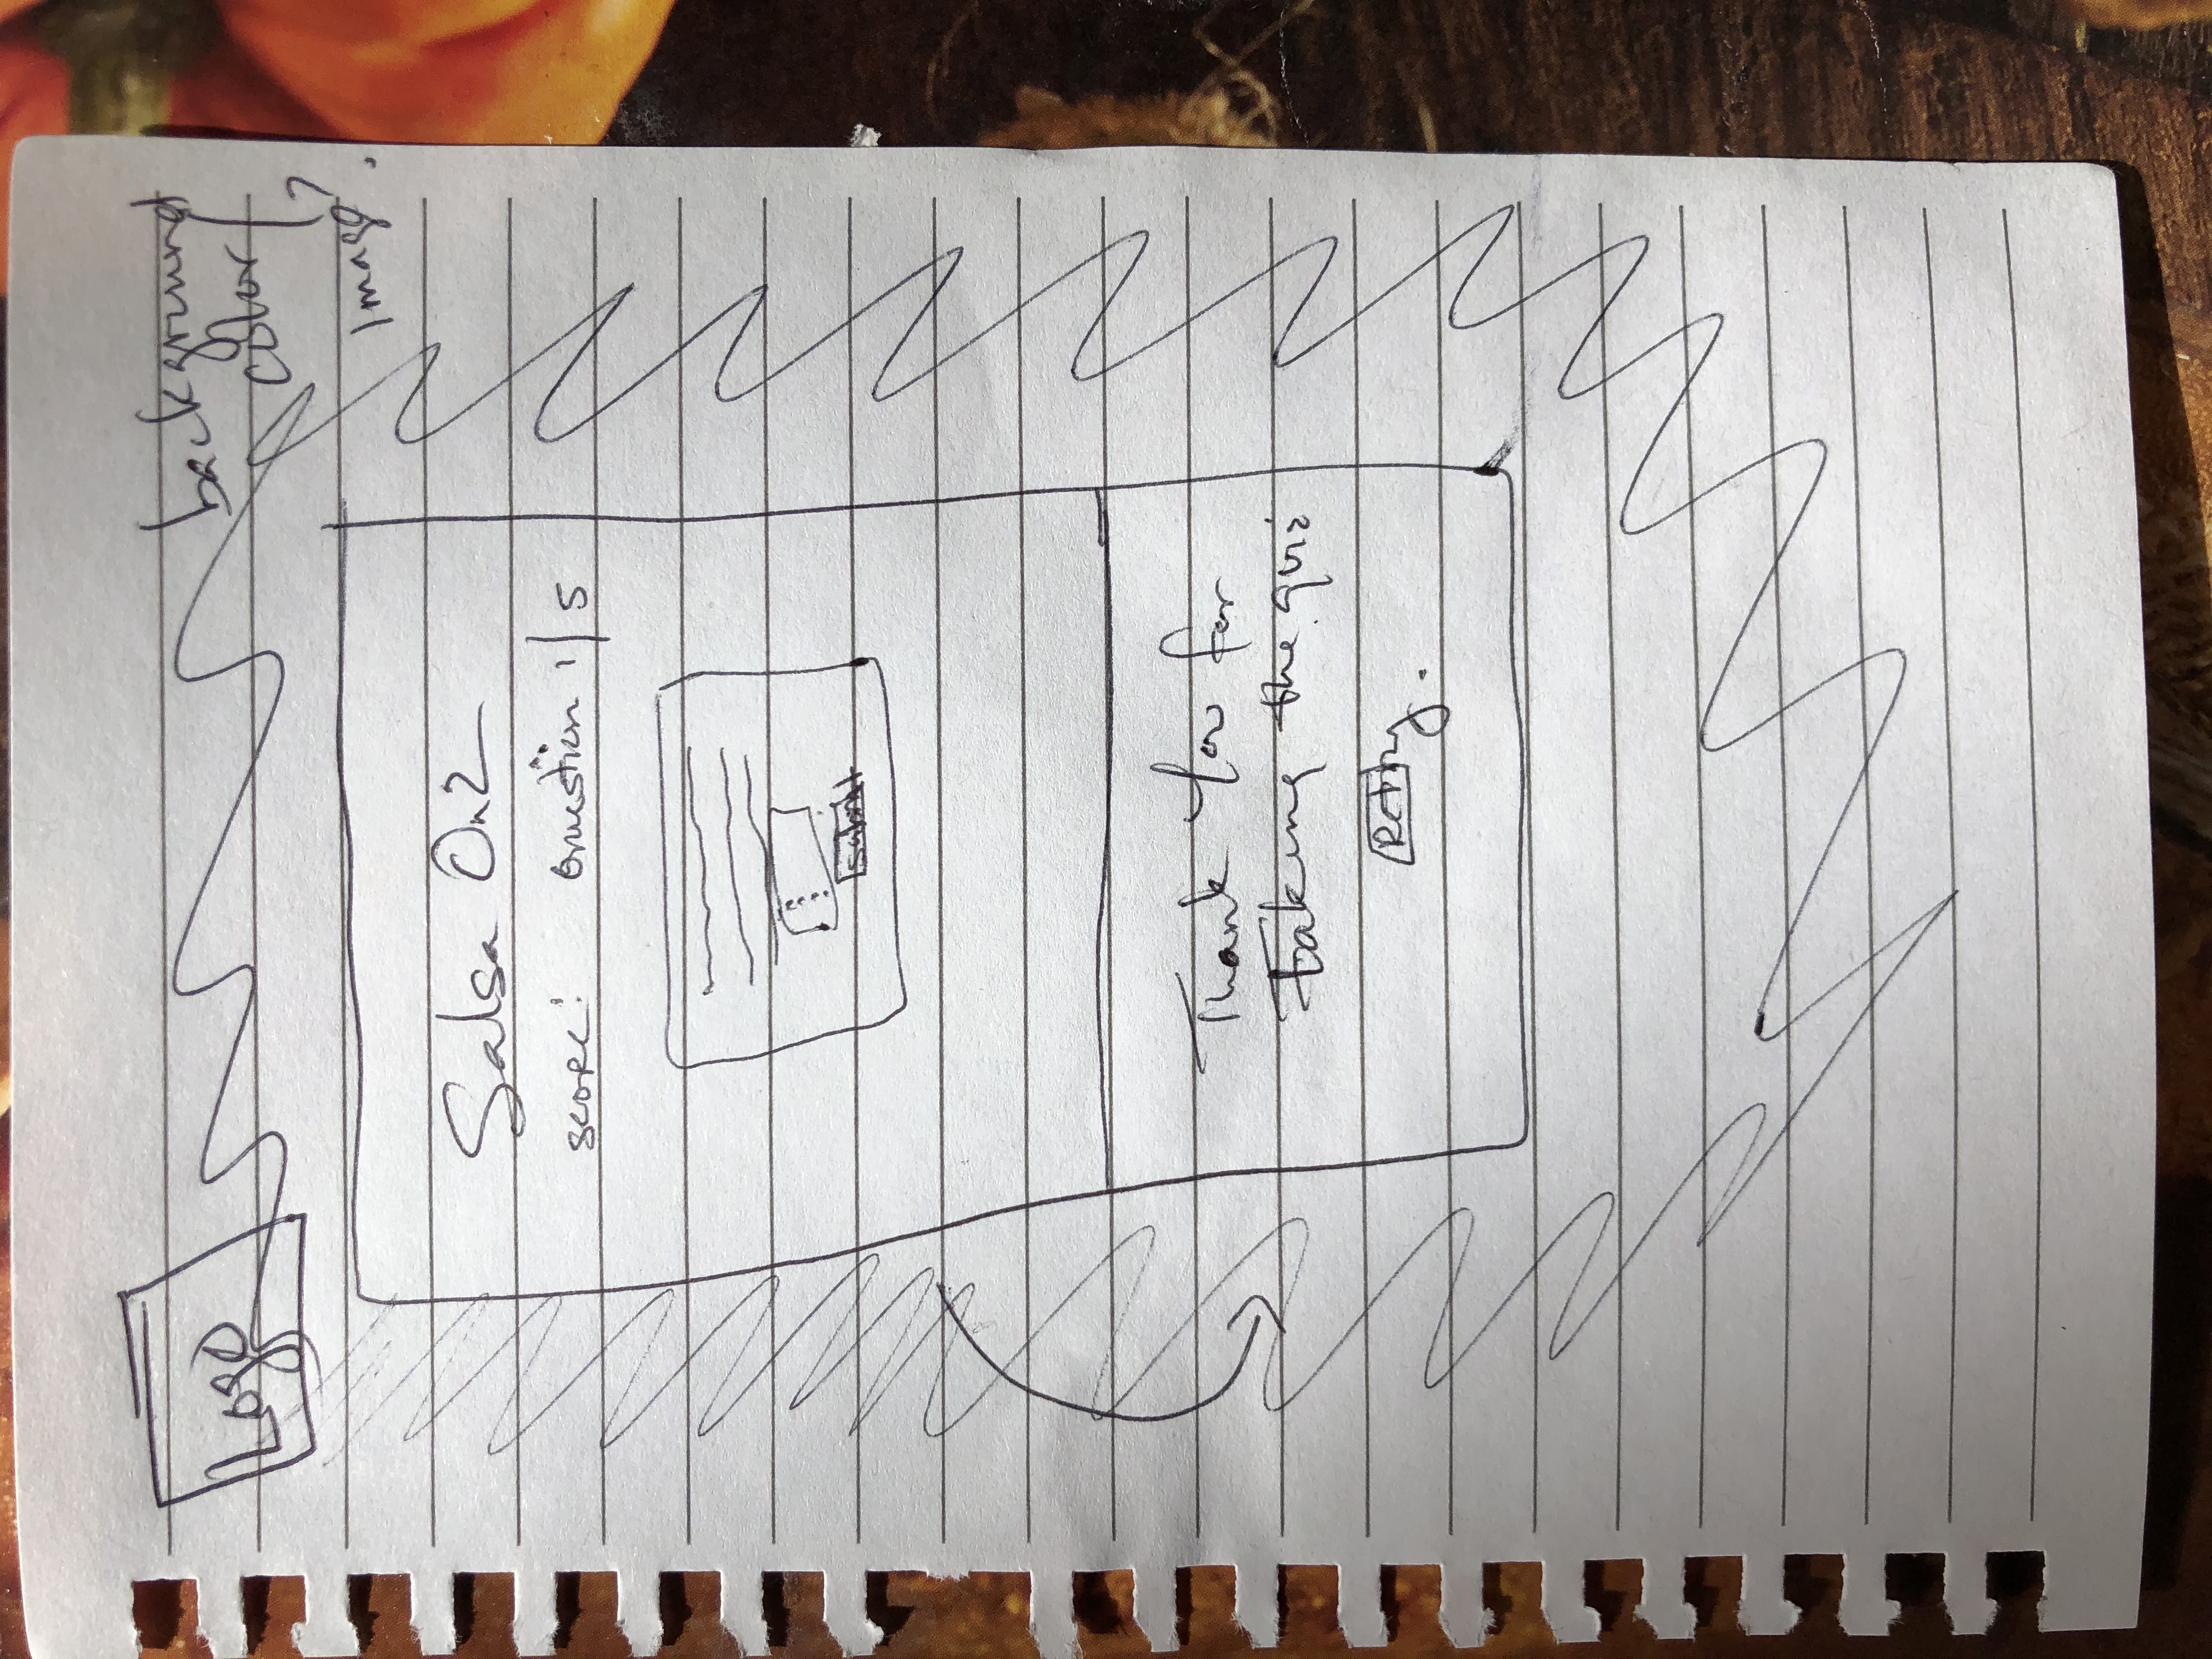 Logo
background
color/
image?
Salsa On2
score: Question 1/5
Submit
Thank You for
taking the quiz
Retry.